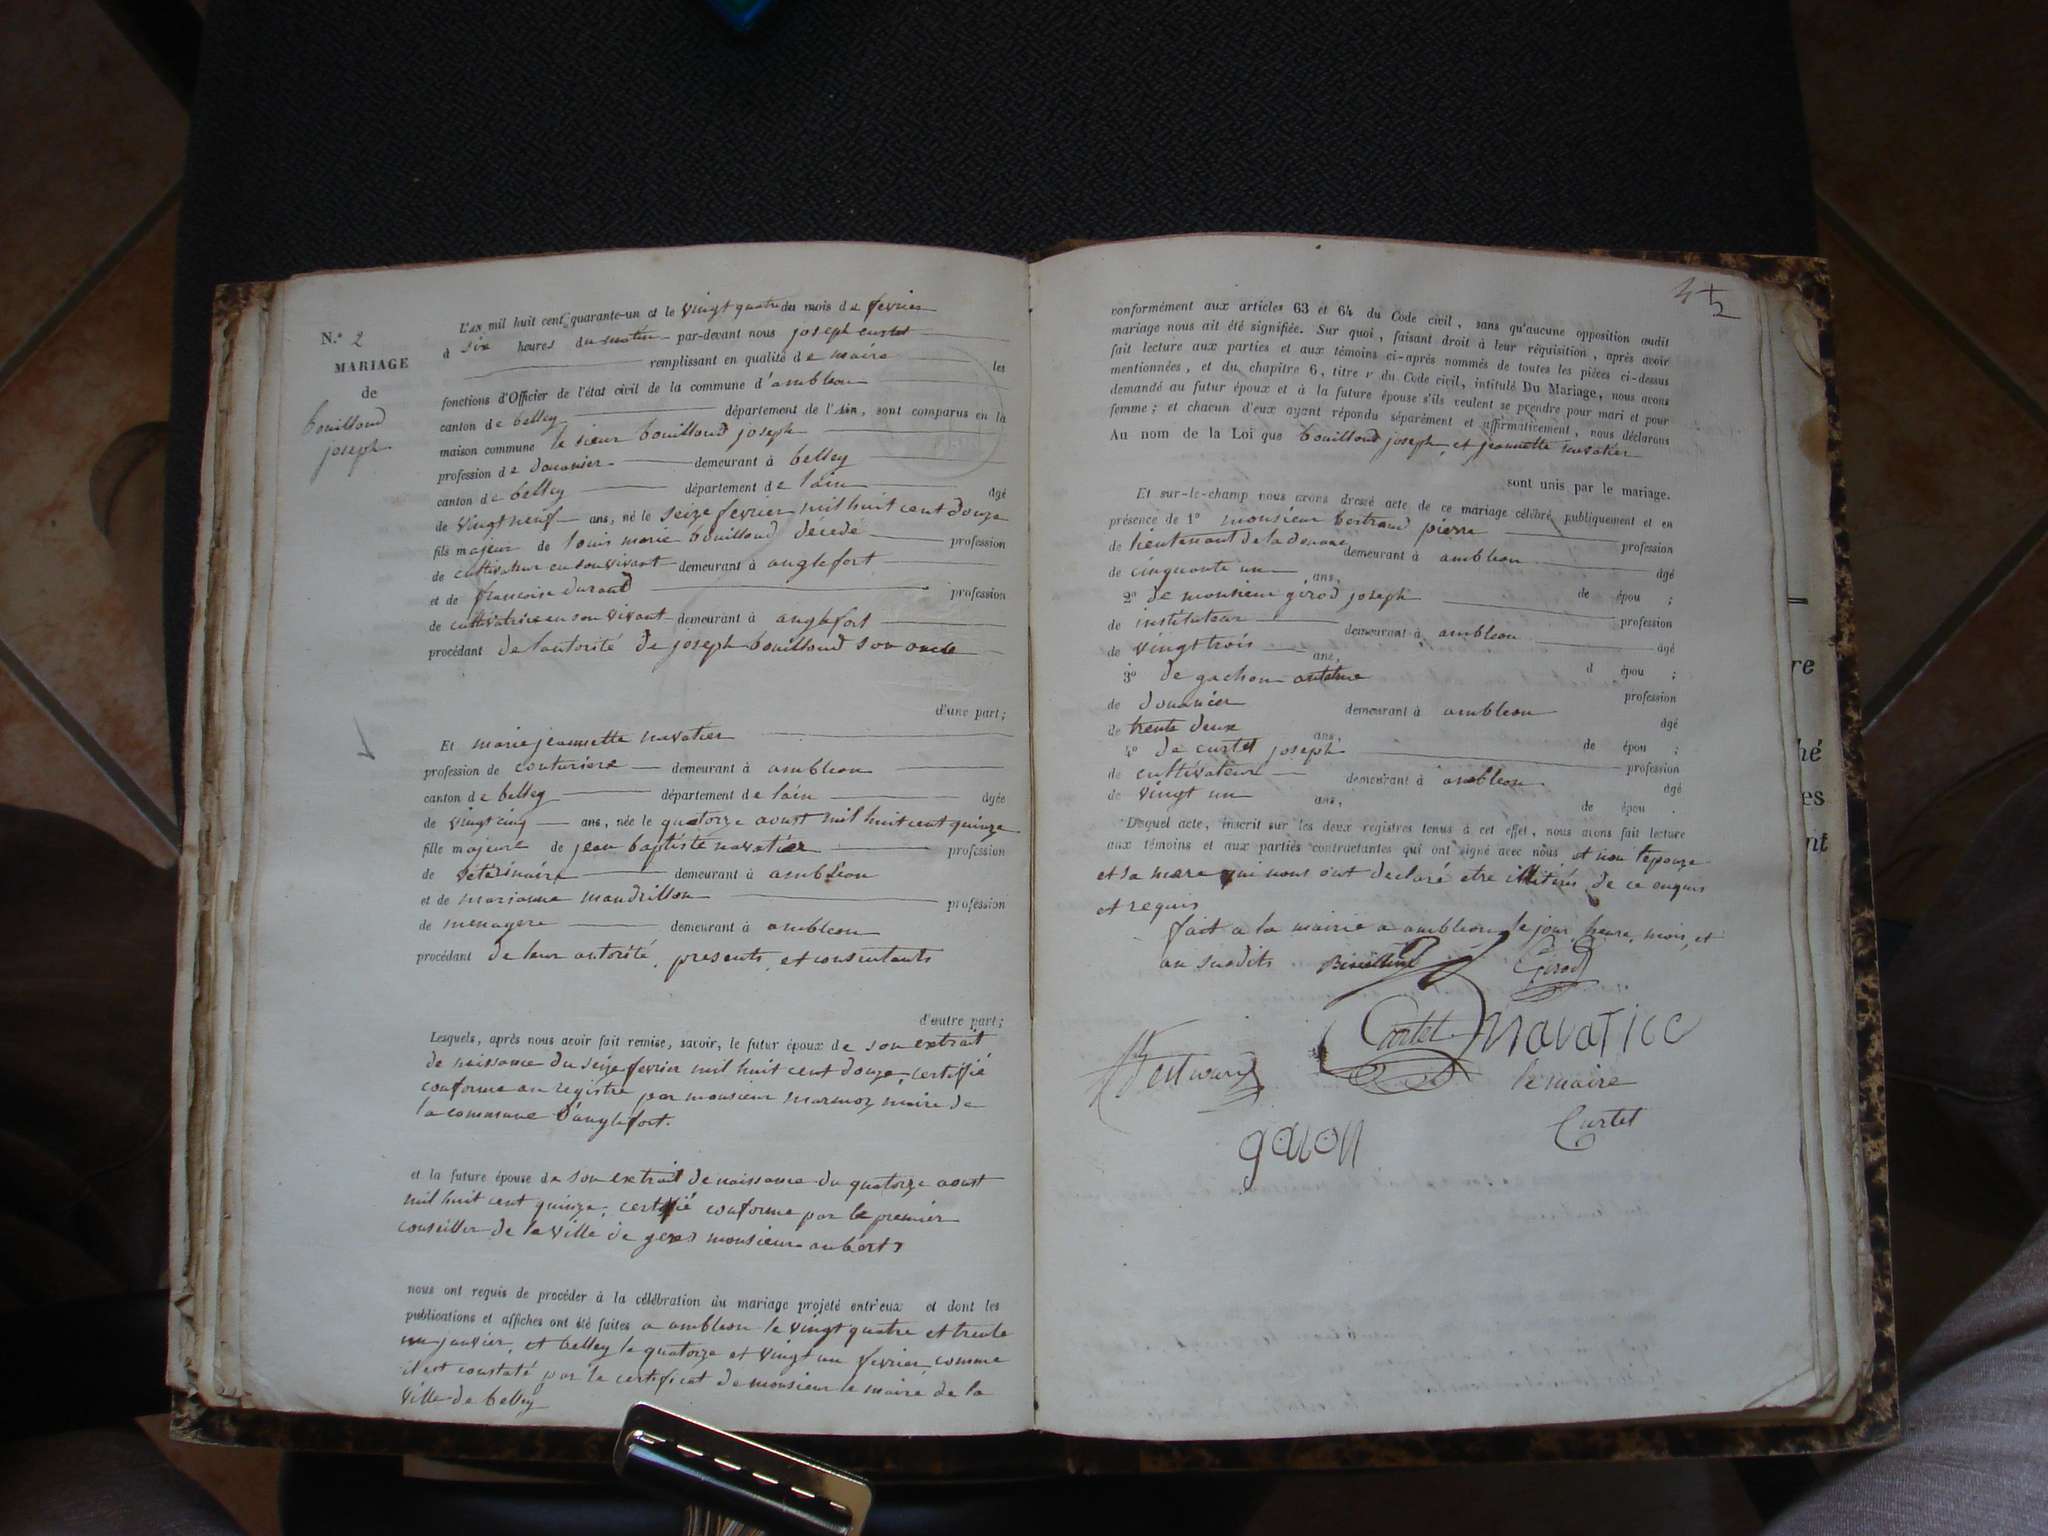 N.° 2
MARIAGE
de
bouilloud
joseph
L'an mil huit cent quarante-un et le vingt quatre du mois de fevrier
à six heures du matin par-devant nous joseph curtet
remplissant en qualité de maire les
fonctions d'Officier de l'état civil de la commune d'ambleon
canton de belley département de l'Ain, sont comparus en la
maison commune le sieur bouilloud joseph
profession de douanier demeurant à belley
canton de belley département de lain âgé
de vingt neuf ans, né le seize fevrier mil huit cent douze
fils majeur de louis marie bouilloud décédé profession
de cultivateur en son vivant demeurant à anglefort
et de francoise durand profession
de cultivatrice en son vivant demeurant à anglefort
procédant de lautorité de joseph bouilloud son oncle
d'une part;
Et marie jeannette navatier
profession de couturière demeurant à ambleon
canton de belley département de lain âgée
de vingt cinq ans, née le quatorze aoust mil huit cent quinze
fille majeure de jean baptiste navatier profession
de vétérinaire demeurant à ambléon
et de marianne mandrillon profession
de menagere demeurant à ambleon
procédant de leur autorité, presents, et consentants
d'autre part;
Lesquels, après nous avoir fait remise, savoir, le futur époux de son extrait
de naissance du seize fevrier mil huit cent douze, certifié
conforme au registre par monsieur marmoz maire de
la commune d'anglefort.
et la future épouse de son extrait de naissance du quatorze aoust
mil huit cent quinze, certifié conforme par le premier
conseiller de la ville de gex monsieur aubert
nous ont requis de procéder à la célébration du mariage projeté entr'eux et dont les
publications et affiches ont été faites a ambleon le vingt quatre et trente
un janvier, et belley le quatorze et vingt un fevrier comme
il est constaté par le certificat de monsieur le maire de la
ville de belley
conformément aux articles 63 et 64 du Code civil, sans qu'aucune opposition audit
mariage nous ait été signifiée. Sur quoi, faisant droit à leur réquisition, après avoir
fait lecture aux parties et aux témoins ci-après nommés de toutes les pièces ci-dessus
mentionnées, et du chapitre 6, titre v du Code civil, intitulé Du Mariage, nous avons
demandé au futur époux et à la future épouse s'ils veulent se prendre pour mari et pour
femme; et chacun d'eux ayant répondu séparément et affirmativement, nous déclarons
Au nom de la Loi que bouilloud joseph, et jeannette navatier
sont unis par le mariage.
Et sur-le-champ nous avons dressé acte de ce mariage célébré publiquement et en
présence de 1° monsieur bertrand pierre
de lieutenant de la douane demeurant à ambleon profession
de cinquante un ans, âgé
2° de monsieur girod joseph de épou ;
de instituteur demeurant à ambleon profession
de vingt trois ans, âgé
3° de gachon antoine d épou ;
de douanier demeurant à ambleon profession
de trente deux ans, âgé
4° de curtet joseph de épou ;
de cultivateur demeurant à ambleon profession
de vingt un ans, âgé
de épou .
Duquel acte, inscrit sur les deux registres tenus à cet effet, nous avons fait lecture
aux témoins et aux parties contractantes qui ont signé avec nous et non lepouze
et sa mere qui nous ont declaré etre illitérés de ce enquis
et requis
fait a la mairie a ambleon, le jour, heure, mois, et
an susdits
Girod
Curtet navatier
Bertrand
le maire
Curtet
gacon